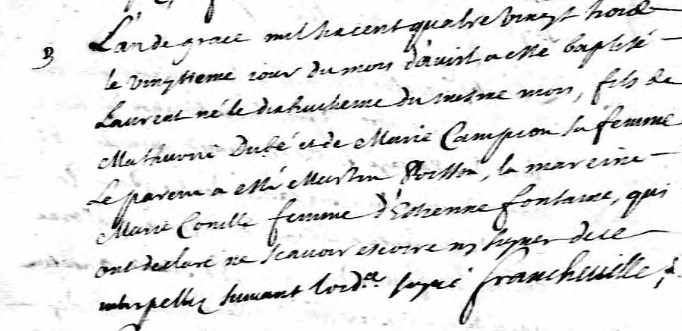 B L'an de grace mil six cent quatre vingt trois
le vingtieme iour du mois d'avril a esté baptisé
Laurent né le dixhuitieme du mesme mois, fils de
Mathurin Dubé et de Marie Campion sa femme
Le parein a esté Martin Poisson, la mareine
Marie femme d'Estienne fontaine, qui
ont declaré ne scavoir escrire ny signer de ce
interpellez suivant l'ord.ce signé francheville